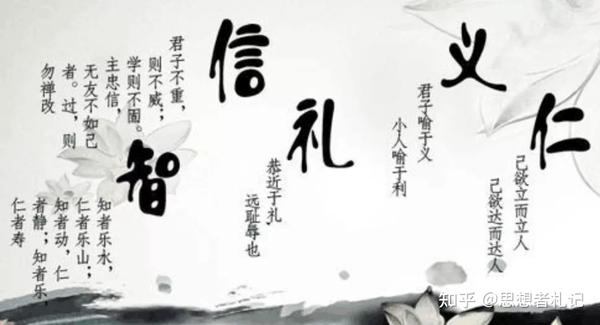 仁
己欲立而立人
己欲达而达人
义
君子喻于义
小人喻于利
礼
恭近于札
远耻辱也
信
君子不重，
则不威；
学则不固。
主忠信，
无友不如己
者。过，则
勿禅改
智
知者乐水，
仁者乐山；
知者动，仁
者静；知者乐，
仁者寿
知乎 @思想者札记